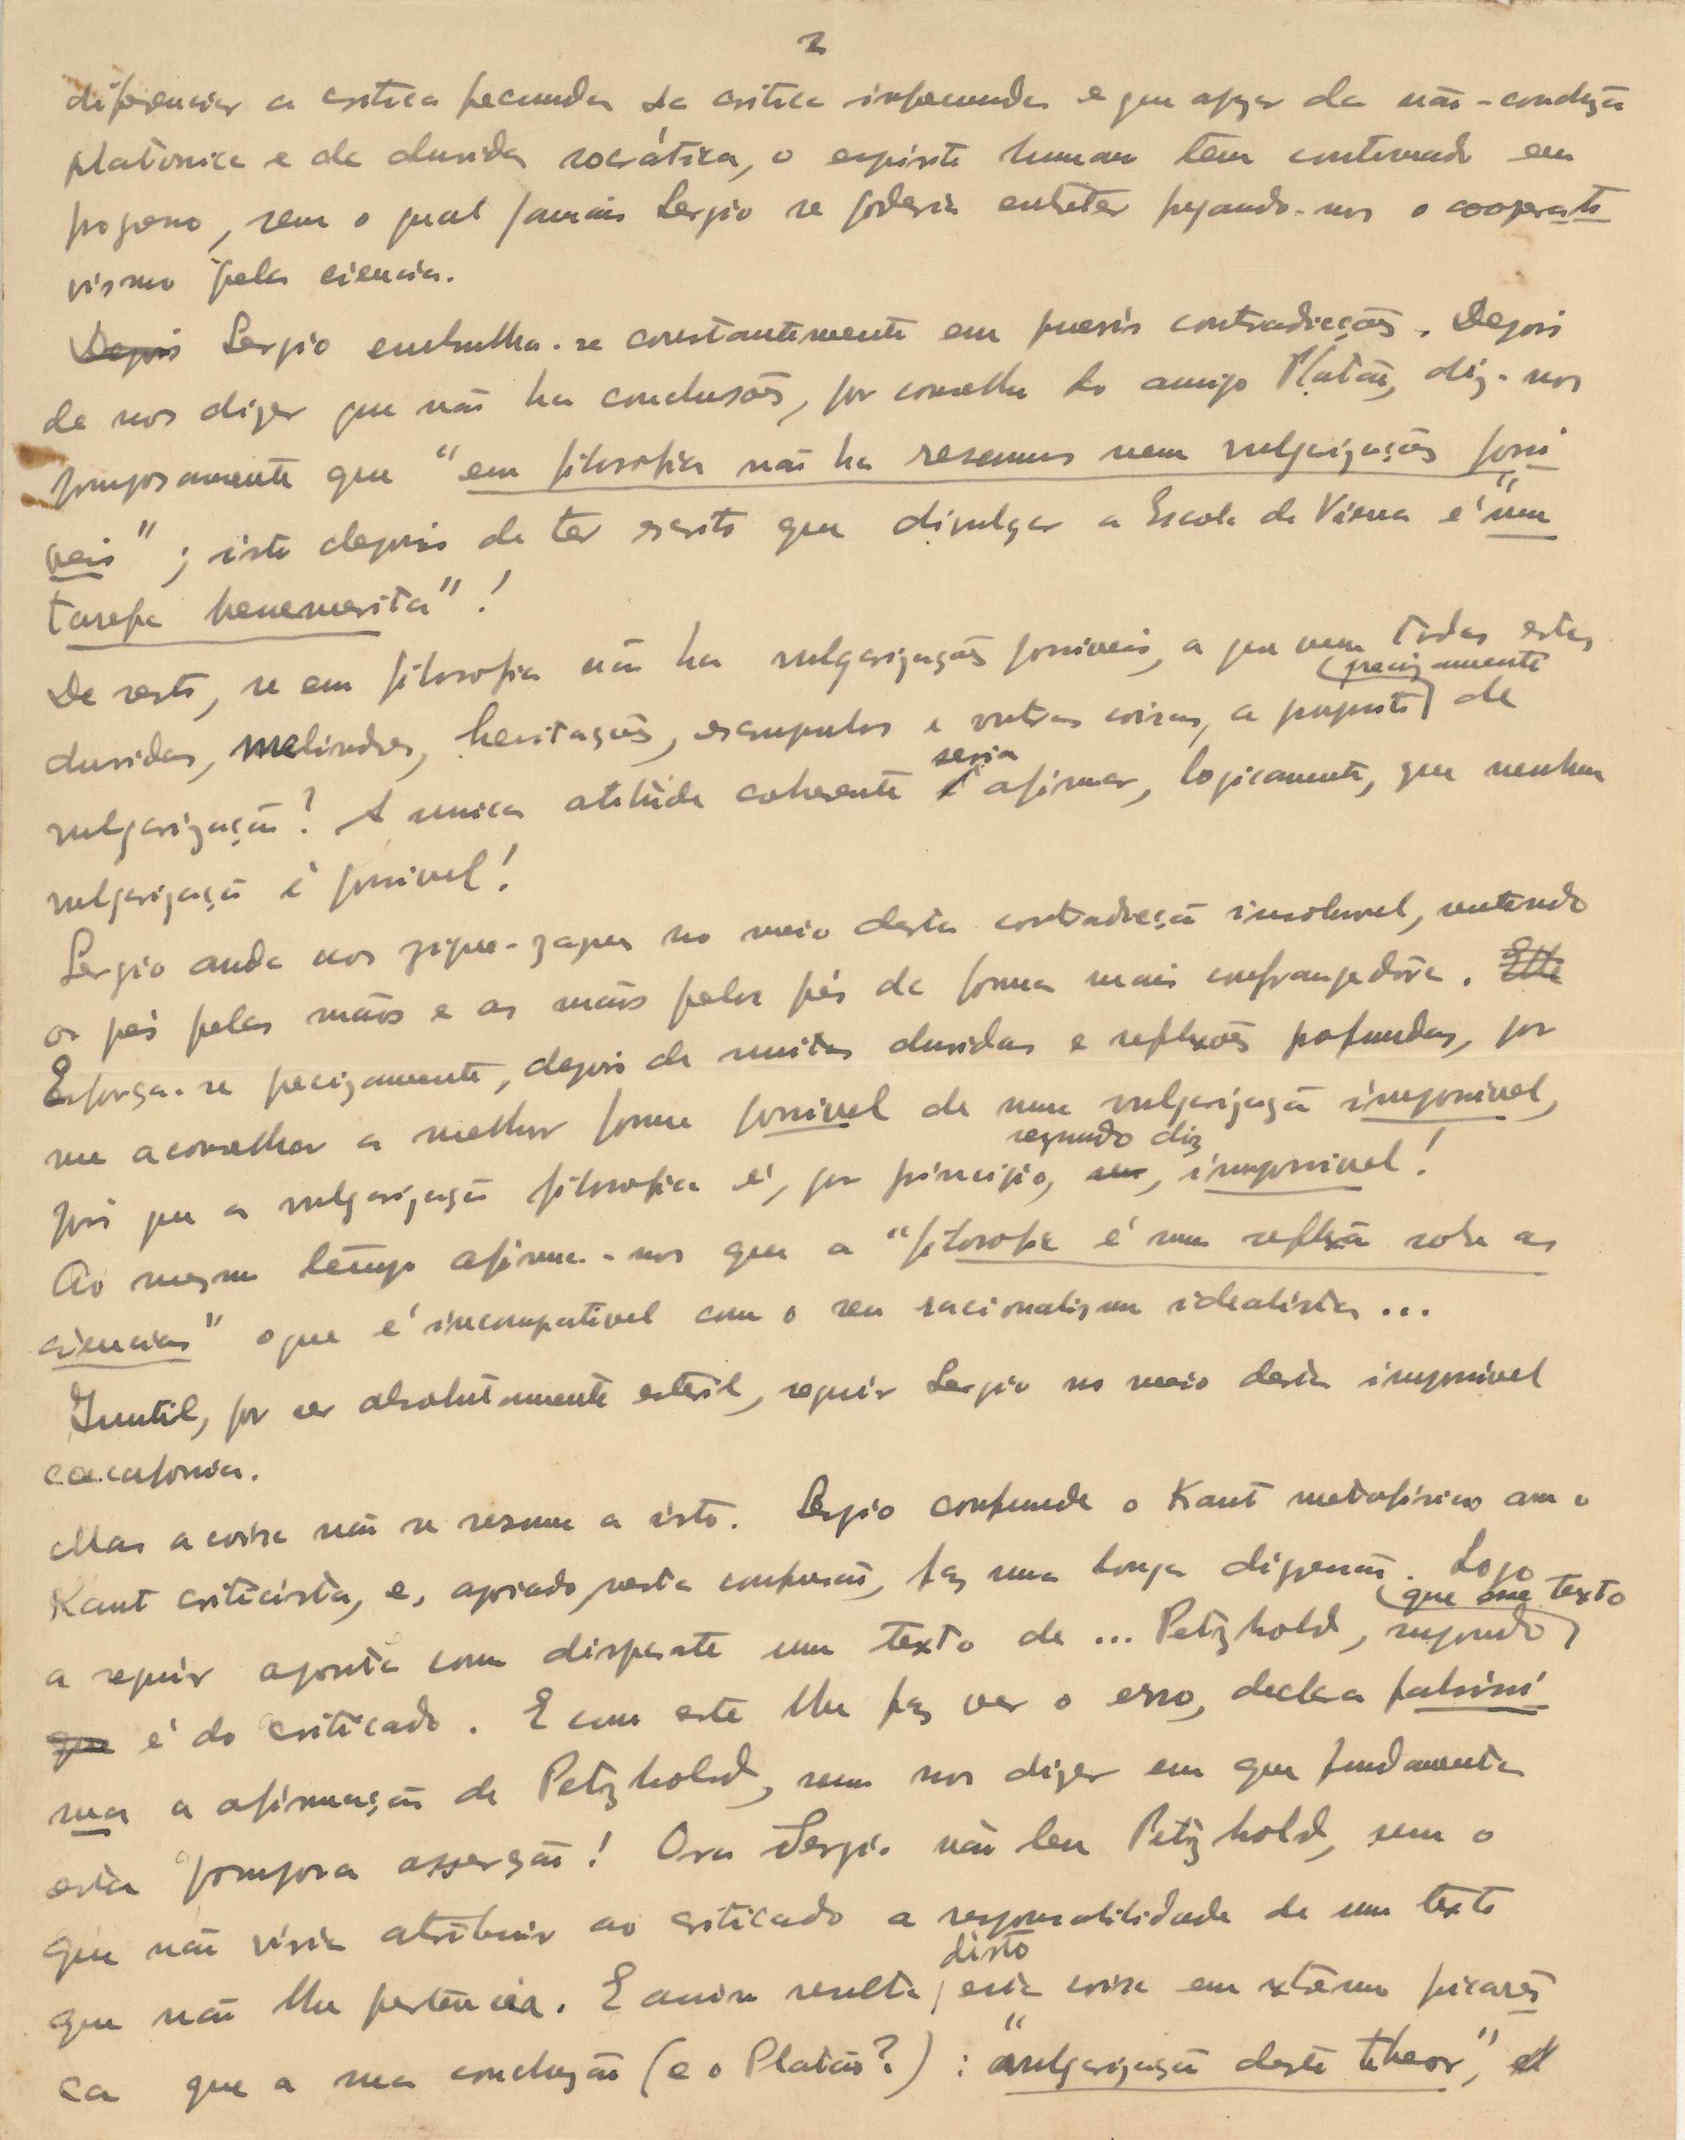 2
diferenciar a critica fecunda da critica infecunda e que apezar da não-conclusão
platonica e da duvida socrática, o espirito humano tem continuado em
progresso, sem o qual jamais Sergio se poderia entreter pregando-nos o cooperati
vismo pela ciencia.
Depois Sergio embrulha-se constantemente em pueris contradicções. Depois
de nos dizer que não ha conclusões, por conselho do amigo Platão, diz-nos
pomposamente que "em filosofia não ha resumos nem vulgarizações possi
veis"; isto depois de ter escrito que divulgar a Escola de Viena é "uma
tarefa benemerita"!
De resto, se em filosofia não ha vulgarizações possiveis, a que vem todas estas
duvidas, melindres, hesitações, escrupulos e outras coisas, a proposito precizamente de
vulgarização? A unica atitude coherente seria afirmar, logicamente, que nenhuma
vulgarização é possivel!
Sergio anda nos zigue-zagues no meio desta contradicção insoluvel, metendo
os pés pelas mãos e as mãos pelos pés da forma mais confrangedôra. Elle
Esforça-se precizamente, depois de muitas duvidas e reflexões profundas, por
me aconselhar a melhor forma possivel de uma vulgarização impossivel,
pois que a vulgarização filosofica é, por principio, segundo diz, impossivel!
Ao mesmo tempo afirma-nos que a "filosofia é uma reflexão sobre as
ciencias" o que é incompativel com o seu racionalismo idealista...
Inutil, por ser absolutamente esteril, seguir Sergio no meio desta impossivel
cacafonia.
Mas a coisa não se resume a isto. Sergio confunde o Kant metafisico com o
Kant criticista, e, apoiado nesta confusão, faz uma longa digressão. Logo
a seguir aponta como disparate um texto de ... Petzhold, supondo que esse texto
que é do criticado. E como este lhe faz ver o erro, declara falsissi
ma a afirmação de Petzhold, sem nos dizer em que fundamenta
esta pomposa asserção! Ora Sergio não leu Petzhold, sem o
que não viria atribuir ao criticado a responsabilidade de um texto
que não lhe pertencia. E assim resulta disto esta coisa em extremo picares
ca que a sua conclusão (e o Platão?): "a vulgarização deste theor",